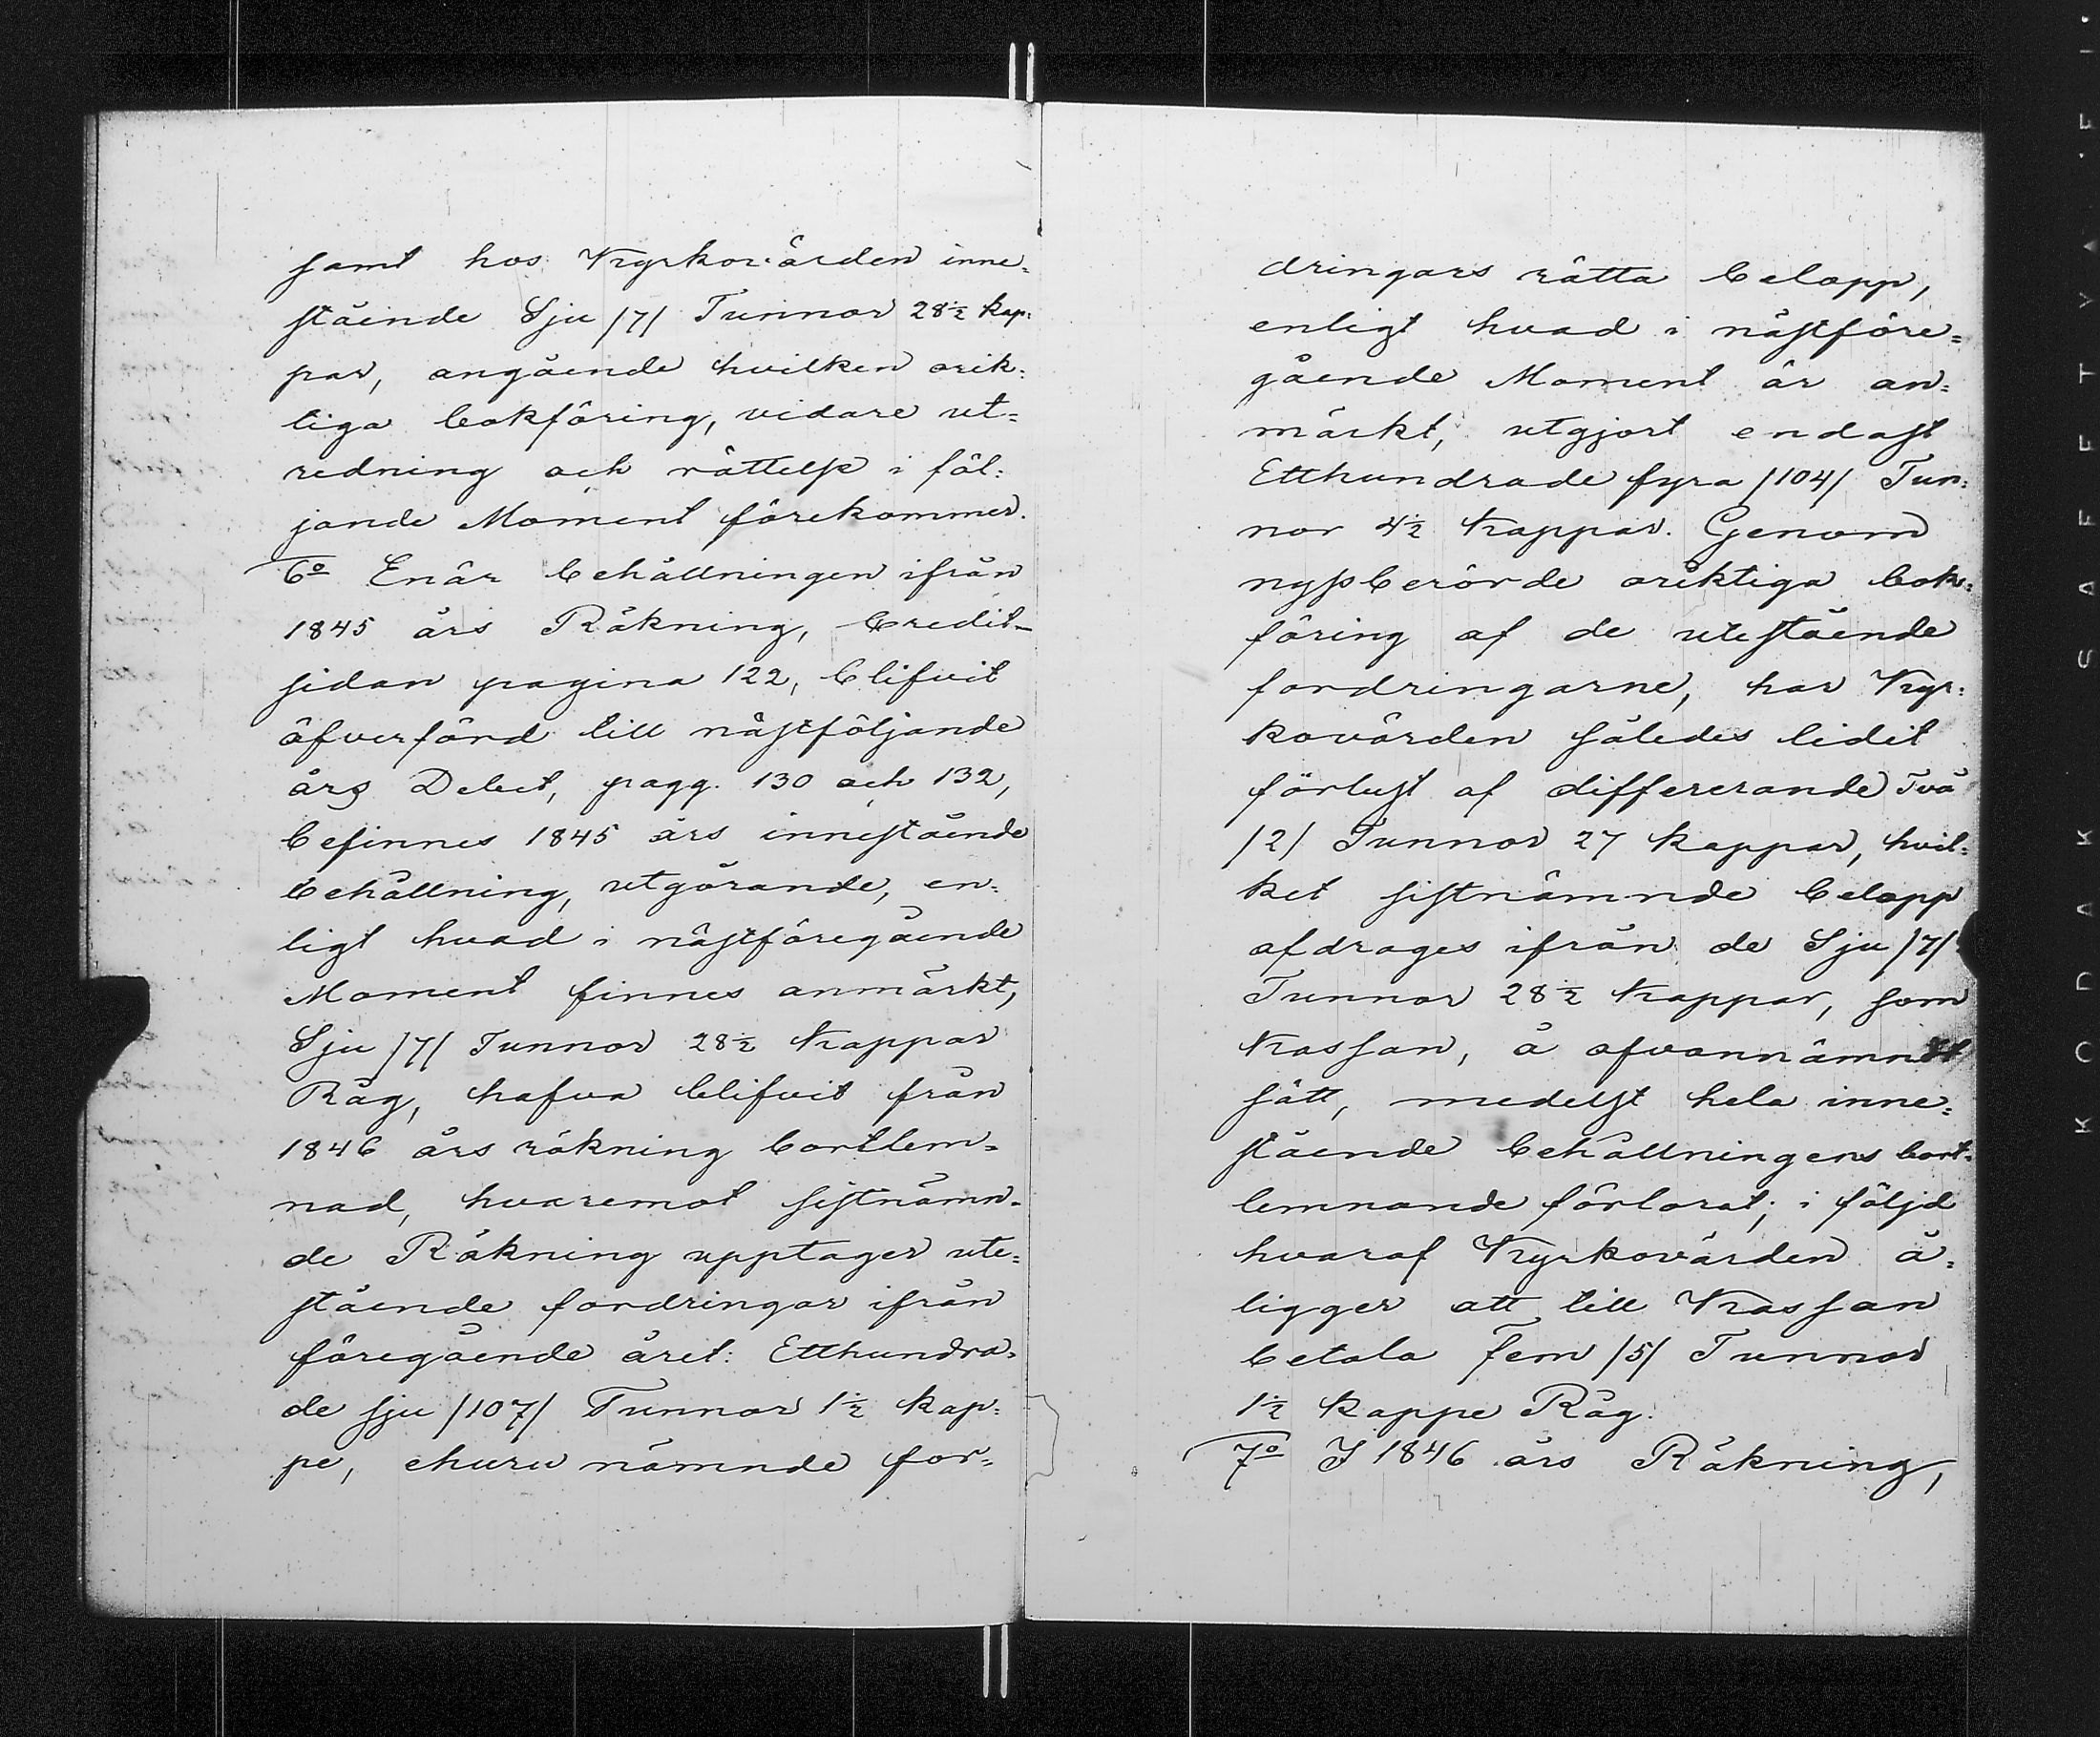 samt hos Kyrkovärden inne=
stående Sju /7/ Tunnor 28½ kap=
par, angående hvilken orik=
tiga bokföring, vidare ut=
redning och rättelse i föl=
jande Moment förekommer.
6o Enär behållningen ifrån
1845 års Räkning, Credit-
sidan pagina 122, blifvit
öfverförd till nästföljande
års Debet, pagg. 130 och 132,
befinnes 1845 års innestående
behållning, utgörande, en=
ligt hvad i nästföregående
Moment finnes anmärkt,
Sju /7/ Tunnor 28½ Kappar
Råg, hafva blifvit från
1846 års räkning bortlem=
nad, hvaremot sistnämn=
de Räkning upptager ute=
stående fordringar ifrån
föregående året: Etthundra=
de sju /107/ Tunnor 1½ kap=
pe, ehuru nämnde for=
dringars rätta belopp,
enligt hvad i nästföre=
gående Moment är an=
märkt, utgjort endast
Etthundrade fyra /104/ Tun=
nor 4½ Kappar. Genom
nyssberörde oriktiga bok=
föring af de utestående
fordringarne, har Kyr=
kovärden således lidit
förlust af differerande Två
/2/ Tunnor 27 kappar, hvil=
ket sistnämnde belopp
afdrages ifrån de Sju /7/
Tunnor 28½ Kappar, som
Kassan, å ofvannämndt
sätt, medelst hela inne=
stående behållningens bort=
lemnande förlorat; i följd
hvaraf Kyrkovärden å=
ligger att till Kassan
betala Fem /5/ Tunnor
1½ kappe Råg.
7o I 1846 års Räkning,
KODAK SAFETY